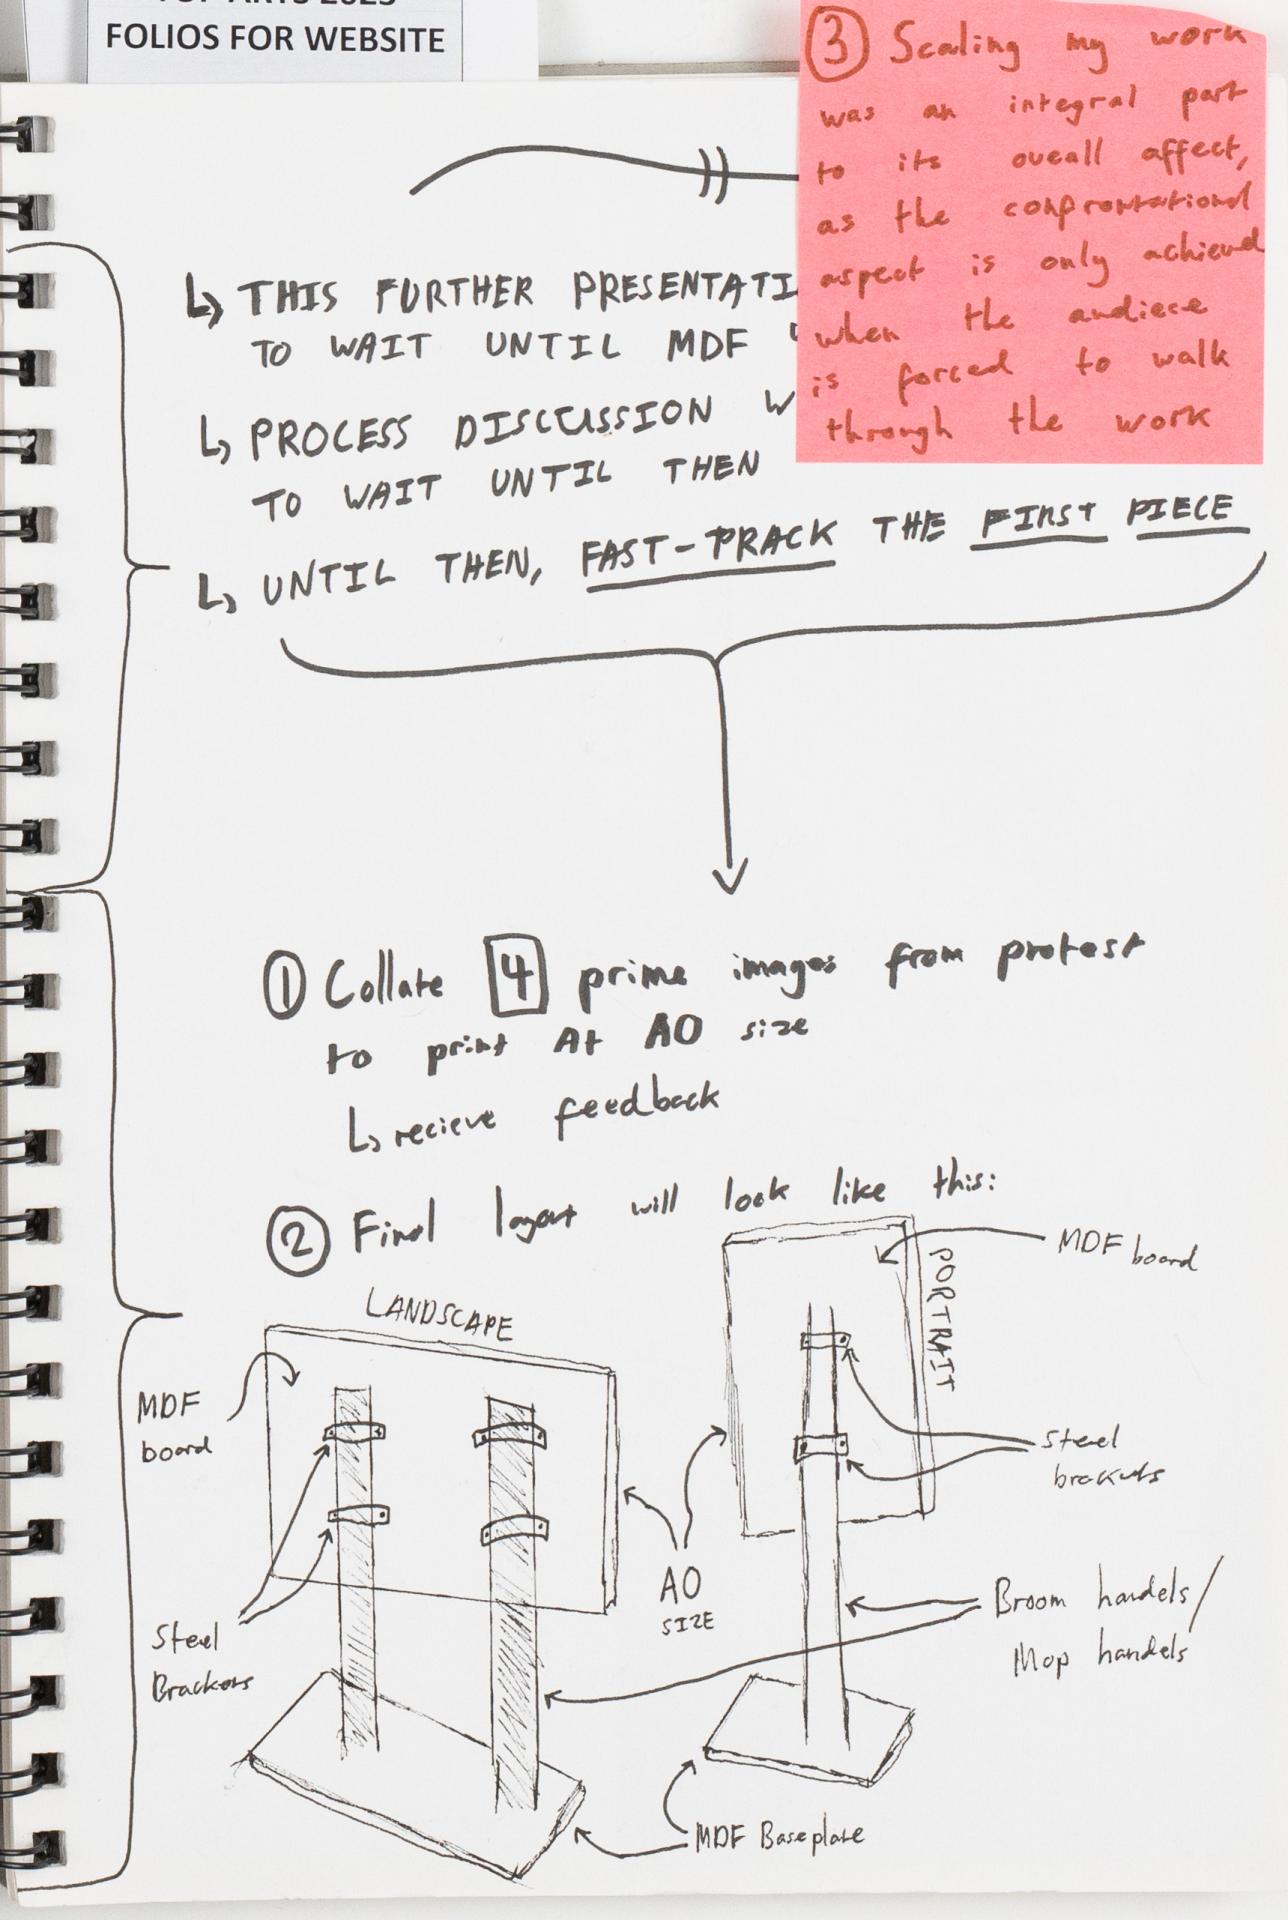 TOP ARTS 2023
FOLIOS FOR WEBSITE
③ Scaling my work
was an integral part
to its oveall affect,
as the confrontational
aspect is only achieved
when the audiece
is forced to walk
through the work
↳ THIS FURTHER PRESENTATI
TO WAIT UNTIL MDF
↳ PROCESS DISCUSSION W
TO WAIT UNTIL THEN
↳ UNTIL THEN, FAST-TRACK THE FIRST PIECE
① Collate 4 prime images from protest
to print At A0 size
↳ recieve feedback
② Final layout will look like this:
LANDSCAPE
MDF
board
Steel
Brackets
A0
SIZE
PORTRAIT
MDF board
Steel
brackets
Broom handels/
Mop handels
MDF Baseplate